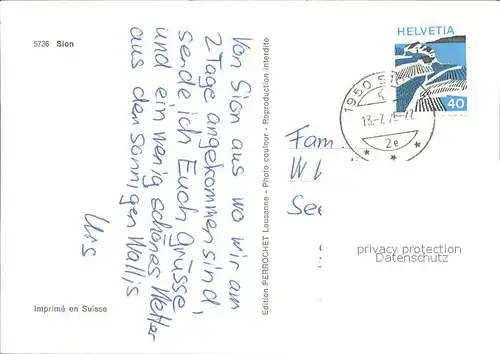 5736 Sion
Von Sion aus wo wir am
2 Tage angekommen sind,
sende ich Euch Grüsse
und ein wenig schönes Wetter
aus dem sonnigen Wallis
Urs
Imprimé en Suisse
Edition PERROCHET Lausanne - Photo couleur - Reproduction interdite
HELVETIA
40
1950
2e
Fam
W
See
privacy protection
Datenschutz